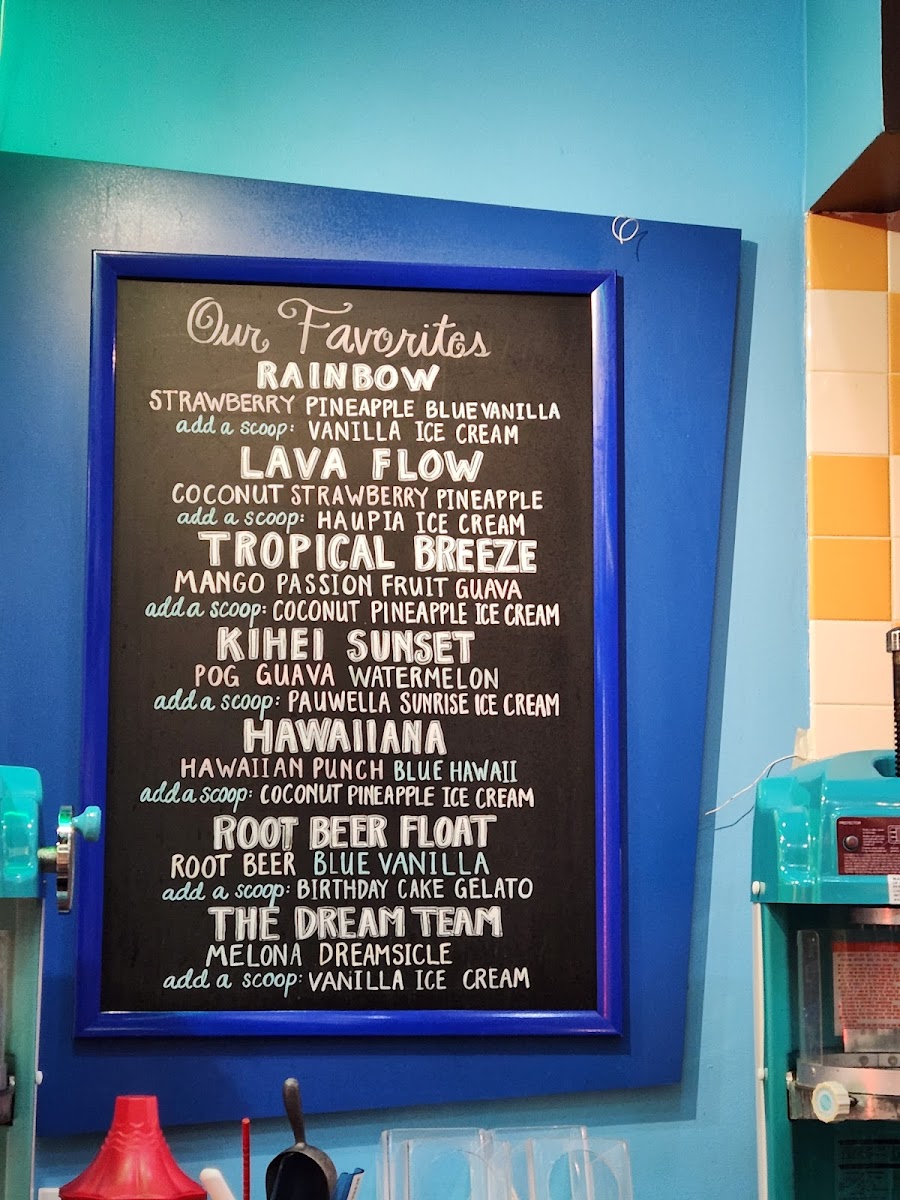 Our Favorites
RAINBOW
STRAWBERRY PINEAPPLE BLUE VANILLA
add a scoop: VANILLA ICE CREAM
LAVA FLOW
COCONUT STRAWBERRY PINEAPPLE
add a scoop: HAUPIA ICE CREAM
TROPICAL BREEZE
MANGO PASSION FRUIT GUAVA
add a scoop: COCONUT PINEAPPLE ICE CREAM
KIHEI SUNSET
POG GUAVA WATERMELON
add a scoop: PAUWELLA SUNRISE ICE CREAM
HAWAIIANA
HAWAIIAN PUNCH BLUE HAWAII
add a scoop: COCONUT PINEAPPLE ICE CREAM
ROOT BEER FLOAT
ROOT BEER BLUE VANILLA
add a scoop: BIRTHDAY CAKE GELATO
THE DREAM TEAM
MELONA DREAMSICLE
add a scoop: VANILLA ICE CREAM
PROTECTOR